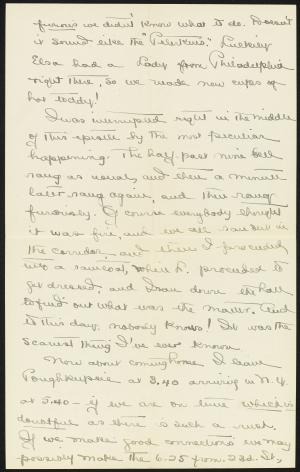 furious we didn't know what to do. Doesn't
it sound like the "Peterkins." Luckily
Elsa had a Lady from Philadelphia
right there, so we made new cups of
hot toddy!
I was interrupted right in the middle
of this epistle by the most peculiar
happening. The half past nine bell
rang as usual, and then a minute
later rang again, and then rang
furiously. Of course everybody thought
it was fire, and we all ran out in
the corridor, and then I proceeded
into a raincoat, while L. proceeded to
get dressed, and I ran down the hall
to find out what was the matter. And
to this day, nobody knows! It was the
scariest thing I've ever known
Now about coming home I leave
Poughkeepsie at 3.40 arriving in N.Y.
at 5.40 – if we are on time which is
doubtful as there is such a rush.
If we make good connections we may
possibly make the 6.25 from 23d. St,